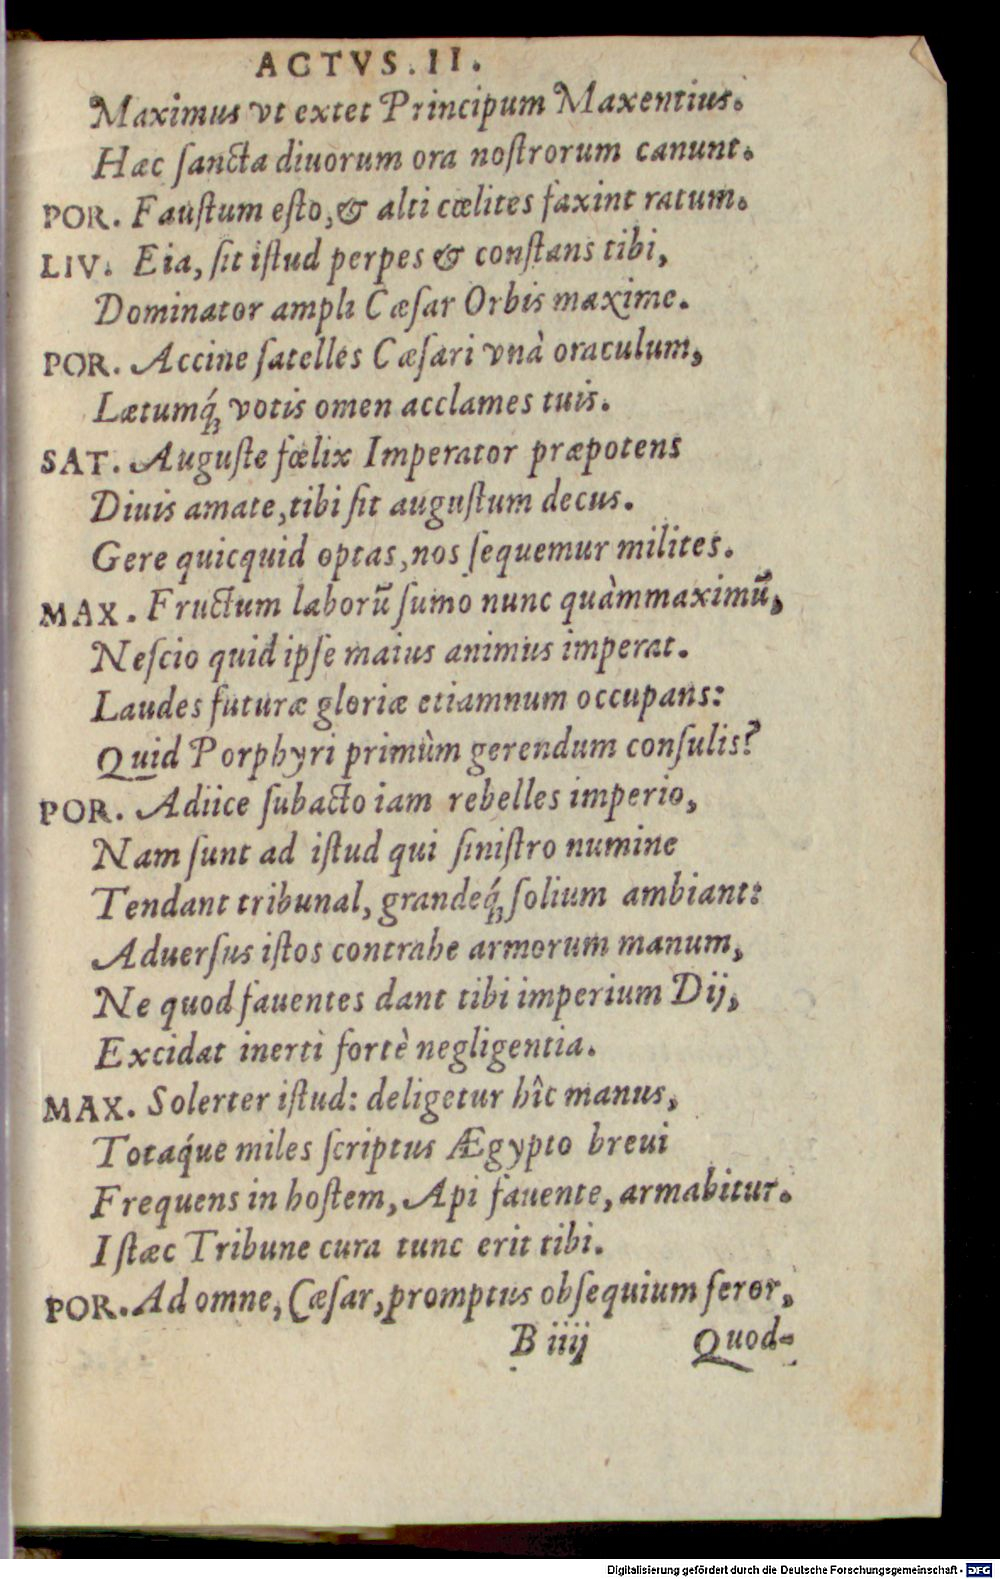 ACTVS. II.
Maximus vt extet Principum Maxentius.
Hæc ſancta diuorum ora noſtrorum canunt.
POR. Fauſtum eſto, & alti cœlites faxint ratum.
LIV. Eia, ſit iſtud perpes & conſtans tibi,
Dominator ampli Cæſar Orbis maxime.
POR. Accine ſatelles Cæſari vnà oraculum,
Lætumq́; votis omen acclames tuis.
SAT. Auguſte fœlix Imperator præpotens
Diuis amate, tibi ſit auguſtum decus.
Gere quicquid optas, nos ſequemur milites.
MAX. Fructum laborũ ſumo nunc quàmmaximũ,
Neſcio quid ipſe maius animus imperat.
Laudes futuræ gloriæ etiamnum occupans:
Quid Porphyri primùm gerendum conſulis?
POR. Adiice ſubacto iam rebelles imperio,
Nam ſunt ad iſtud qui ſiniſtro numine
Tendant tribunal, grandeq́; ſolium ambiant:
Aduerſus iſtos contrahe armorum manum,
Ne quod fauentes dant tibi imperium Dij,
Excidat inerti fortè negligentia.
MAX. Solerter iſtud: deligetur hîc manus,
Totaq́ue miles ſcriptus Ægypto breui
Frequens in hoſtem, Api fauente, armabitur.
Iſtæc Tribune cura tunc erit tibi.
POR. Ad omne, Cæſar, promptus obſequium feror,
B iiij Quod-
Digitalisierung gefördert durch die Deutsche Forschungsgemeinschaft - DFG